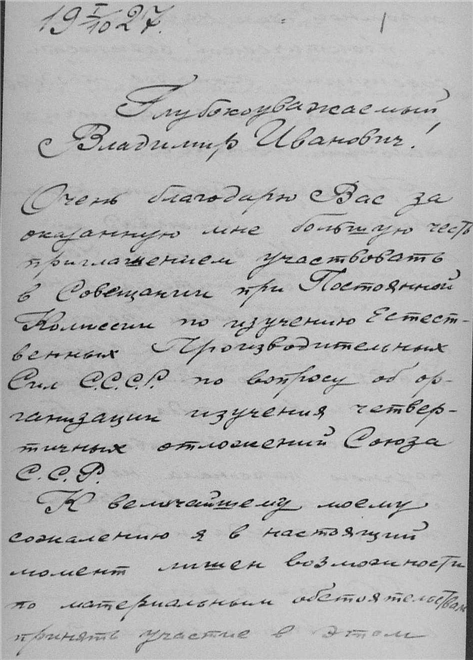 19 I/10 27.
Глубокоуважаемый
Владимир Иванович!
Очень благодарю Вас за
оказанную мне большую честь
приглашением участвовать
в Совещании при Постоянной
Комиссии по изучению Естест-
венных Производительных
Сил С.С.С.Р. по вопросу об ор-
ганизации изучения четвер-
тичных отложений Союза
С.С.Р.
К величайшему моему
сожалению я в настоящий
момент лишен возможности
по материальным обстоятельствам
принять участие в этом